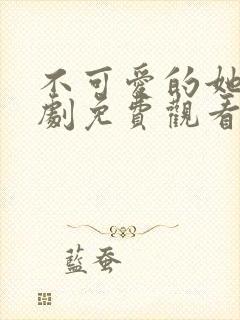 不可愛的她
劇免費觀看
藍蚕